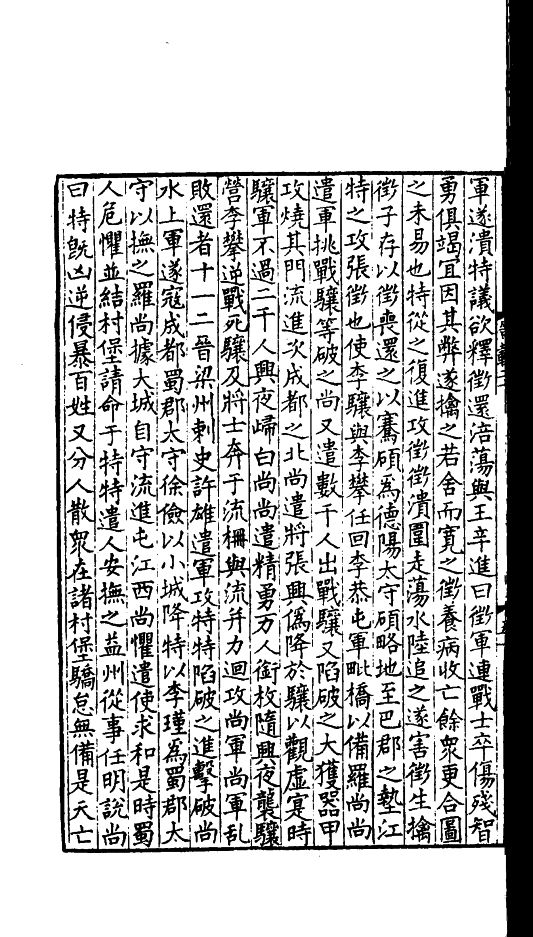 軍遂潰特議欲釋徵還涪蕩與王辛進曰徵軍連戰士卒傷殘智
勇俱竭宜因其弊遂擒之若舍而寬之徵養病收亡餘衆更合圖
之未易也特從之復進攻徵徵潰圍走蕩水陸追之遂害徵生擒
徵子存以徵喪還之以騫碩爲德陽太守碩略地至巴郡之墊江
特之攻張徵也使李驤與李攀任回李恭屯軍毗橋以備羅尚尚
遣軍挑戰驤等破之尚又遣數千人出戰驤又陷破之大獲器甲
攻燒其門流進次成都之北尚遣將張興僞降於驤以觀虛寔時
驤軍不過二千人興夜歸白尚尚遣精勇万人銜枚隨興夜襲驤
營李攀逆戰死驤及將士奔于流柵與流并力迴攻尚軍尚軍乱
敗還者十一二晉梁州刺史許雄遣軍攻特特陷破之進擊破尚
水上軍遂寇成都蜀郡太守徐儉以小城降特以李瑾爲蜀郡太
守以撫之羅尚據大城自守流進屯江西尚懼遣使求和是時蜀
人危懼並結村堡請命于特特遣人安撫之益州從事任明說尚
曰特旣凶逆侵暴百姓又分人散衆在諸村堡驕怠無備是天亡